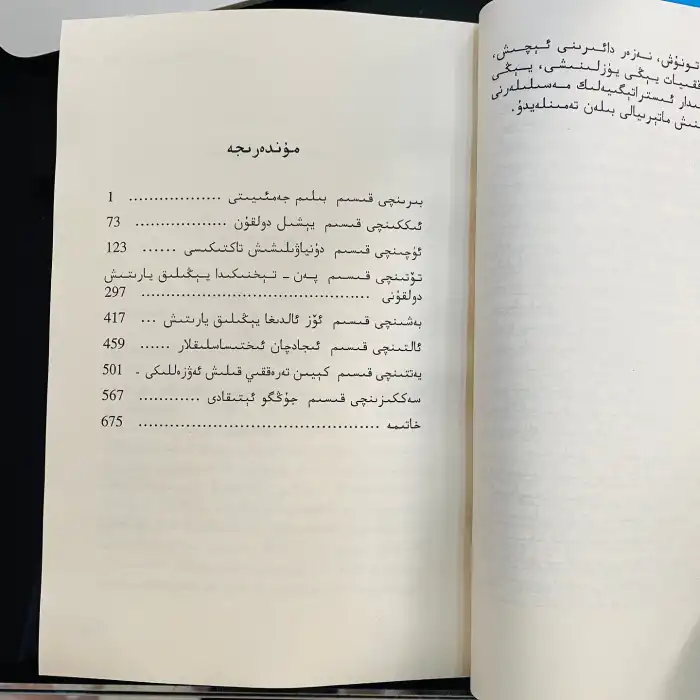 تونۇش، نەزەر دائىرىنى ئېچىش،
قىيات يېڭى يۈزلىنىشى، يېڭى
ئىستراتېگىيەلىك مەسىلىلەرنى
ماتېرىيالى بىلەن تەمىنلەيدۇ.
مۇندەرىجە
بىرىنچى قىسىم بىلىم جەمئىيىتى .................. 1
ئىككىنچى قىسىم يېشىل دولقۇن .................. 73
ئۈچىنچى قىسىم دۇنياۋىلىشىش تاكتىكىسى ...... 123
تۆتىنچى قىسىم پەن - تېخنىكىدا يېڭىلىق يارىتىش
دولقۇنى ............................................ 297
بەشىنچى قىسىم ئۆز ئالدىغا يېڭىلىق يارىتىش ... 417
ئالتىنچى قىسىم ئىجادچان ئىختىساسلىقلار ...... 459
يەتتىنچى قىسىم كېيىن تەرەققىي قىلىش ئەۋزەللىكى - 501
سەككىزىنچى قىسىم جۇڭگو ئېتىقادى ............ 567
خاتىمە ............................................... 675